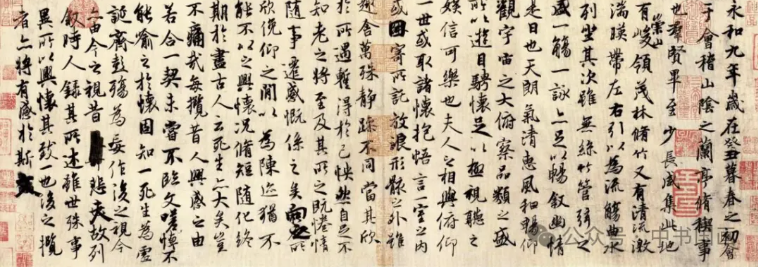 永和九年歲在癸丑暮春之初會
于會稽山陰之蘭亭脩稧事
也群賢畢至少長咸集此地
有崇山峻領茂林脩竹又有清流激
湍暎帶左右引以為流觴曲水
列坐其次雖無絲竹管弦之
盛一觴一詠亦足以暢敘幽情
是日也天朗氣清惠風和暢仰
觀宇宙之大俯察品類之盛
所以遊目騁懷足以極視聽之
娛信可樂也夫人之相與俯仰
一世或取諸懷抱悟言一室之內
或因寄所託放浪形骸之外雖
趣舍萬殊靜躁不同當其欣
於所遇蹔得於己怏然自足不
知老之將至及其所之既惓情
隨事遷感慨係之矣向之所
欣俛仰之閒以為陳迹猶不
能不以之興懷況脩短隨化終
期於盡古人云死生亦大矣豈
不痛哉每攬昔人興感之由
若合一契未嘗不臨文嗟悼不
能喻之於懷固知一死生為虛
誕齊彭殤為妄作後之視今
亦由今之視昔悲夫故列
敘時人錄其所述雖世殊事
異所以興懷其致一也後之攬
者亦將有感於斯文
公众号